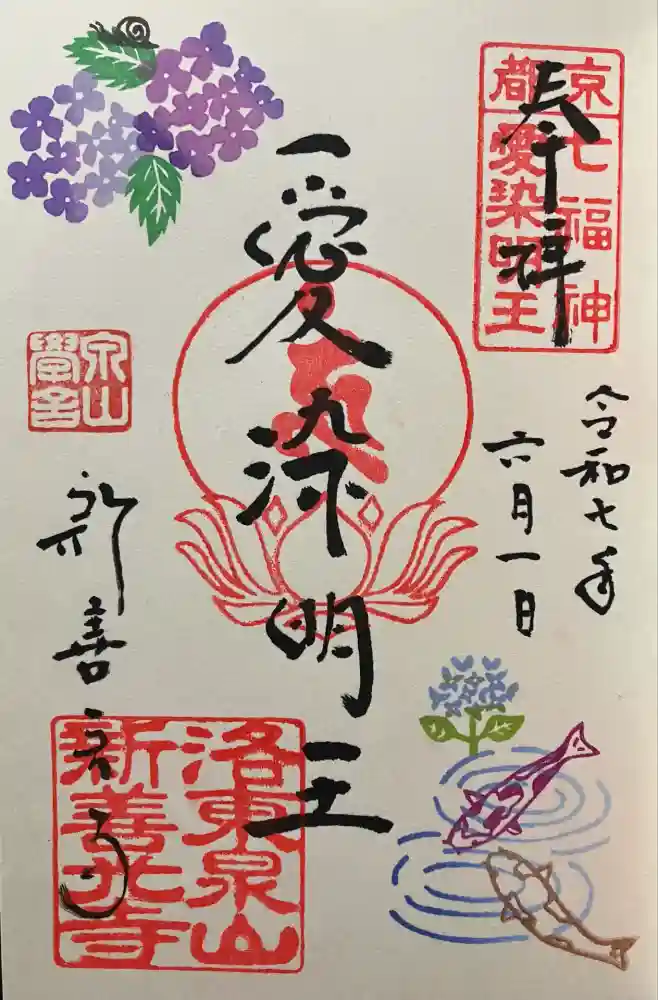 奉拝
京都七福神
愛染明王
令和七年
六月一日
愛染明王
泉山
学舎
新善光寺
洛東泉山
新善光寺